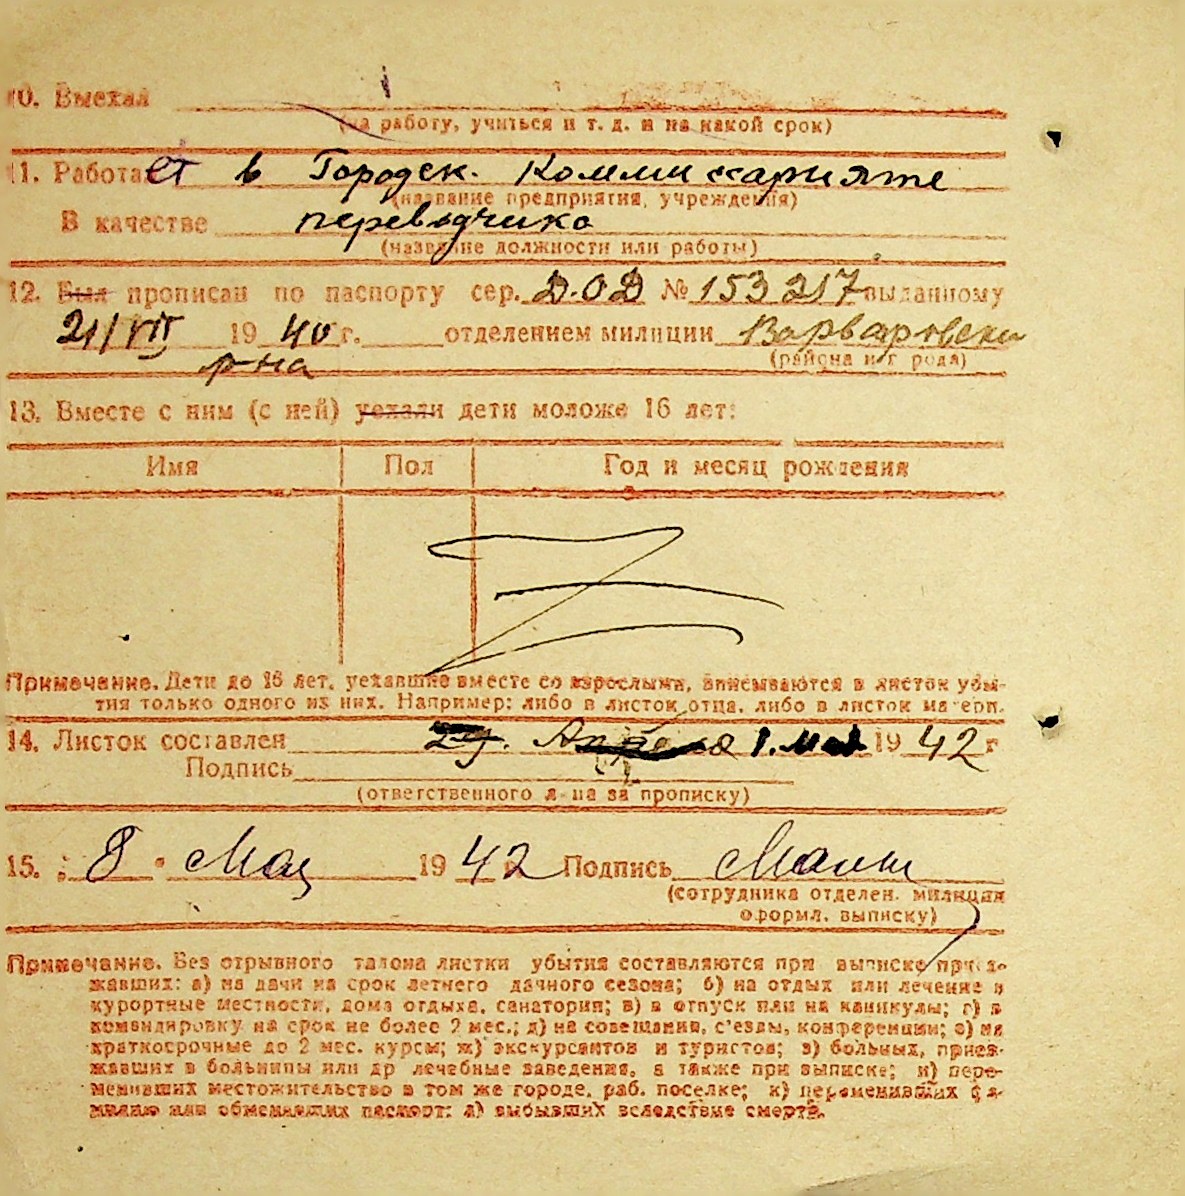 10. Выехал
(на работу, учиться и т. д. и на какой срок)
11. Работает в Городск. Коммиссарияте
(название предприятия, учреждения)
В качестве переводчика
(название должности или работы)
12. Был прописан по паспорту сер. Д.ОД № 153217 выданному
21/VII 1940 г. отделением милиции Варваровски
р-на (района и г рода)
13. Вместе с ним (с ней) уехали дети моложе 16 лет:
Имя Пол Год и месяц рождения
Примечание. Дети до 16 лет, уехавшие вместе со взрослыми, вписываются в листок убы-
тия только одного из них. Например: либо в листок отца, либо в листок матери.
14. Листок составлен 29. Апреля 1. Мая 1942 г
Подпись
(ответственного л-ца за прописку)
15. 8 Мая 1942 Подпись
(сотрудника отделен. милиции
оформл. выписку)
Примечание. Без отрывного талона листки убытия составляются при выписке приез-
жавших: а) на дачи на срок летнего дачного сезона; б) на отдых или лечение в
курортные местности, дома отдыха, санатории; в) в отпуск или на каникулы; г) в
командировку на срок не более 2 мес.; д) на совещания, с'езды, конференции; е) на
краткосрочные до 2 мес. курсы; ж) экскурсантов и туристов; з) больных, приез-
жавших в больницы или др лечебные заведения, а также при выписке; и) пере-
менивших местожительство в том же городе, раб. поселке; к) переменивших фа-
милию или обменявших паспорт; л) выбывших вследствие смерти.